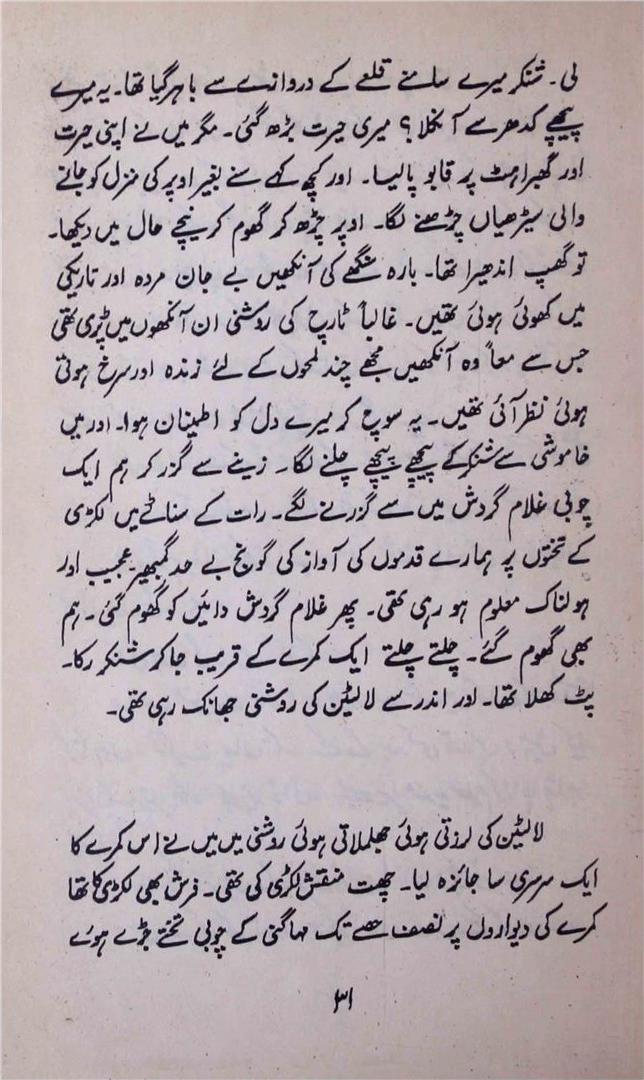 لی۔ شنکر میرے سامنے قلعے کے دروازے سے باہر گیا تھا۔ یہ میرے
پیچھے کدھر سے آ نکلا؟ میری حیرت بڑھ گئی۔ مگر میں نے اپنی حیرت
اور گھبراہٹ پر قابو پا لیا۔ اور کچھ کہے سنے بغیر اوپر کی منزل کو جانے
والی سیڑھیاں چڑھنے لگا۔ اوپر چڑھ کر گھوم کر نیچے ہال میں دیکھا۔
تو گھپ اندھیرا تھا۔ بارہ سنگھے کی آنکھیں بے جان مردہ اور تاریکی
میں کھوئی ہوئی تھیں۔ غالباً ٹارچ کی روشنی ان آنکھوں میں پڑی تھی
جس سے معاً وہ آنکھیں مجھے چند لمحوں کے لئے زندہ اور سرخ ہوتی
ہوئی نظر آئی تھیں۔ یہ سوچ کر میرے دل کو اطمینان ہوا۔ اور میں
خاموشی سے شنکر کے پیچھے پیچھے چلنے لگا۔ زینے سے گزر کر ہم ایک
چوبی غلام گردش میں سے گزرنے لگے۔ رات کے سناٹے میں لکڑی
کے تختوں پر ہمارے قدموں کی آواز کی گونج بے حد گمبھیر۔ عجیب اور
ہولناک معلوم ہو رہی تھی۔ پھر غلام گردش دائیں کو گھوم گئی۔ ہم
بھی گھوم گئے۔ چلتے چلتے ایک کمرے کے قریب جا کر شنکر رکا۔
پٹ کھلا تھا۔ اور اندر سے لالٹین کی روشنی جھانک رہی تھی۔
لالٹین کی لرزتی ہوئی جھلملاتی ہوئی روشنی میں میں نے اس کمرے کا
ایک سرسری سا جائزہ لیا۔ چھت منقش لکڑی کی تھی۔ فرش بھی لکڑی کا تھا
کمرے کی دیواروں پر نصف حصے تک مہاگنی کے چوبی تختے جڑے ہوئے
۳۱